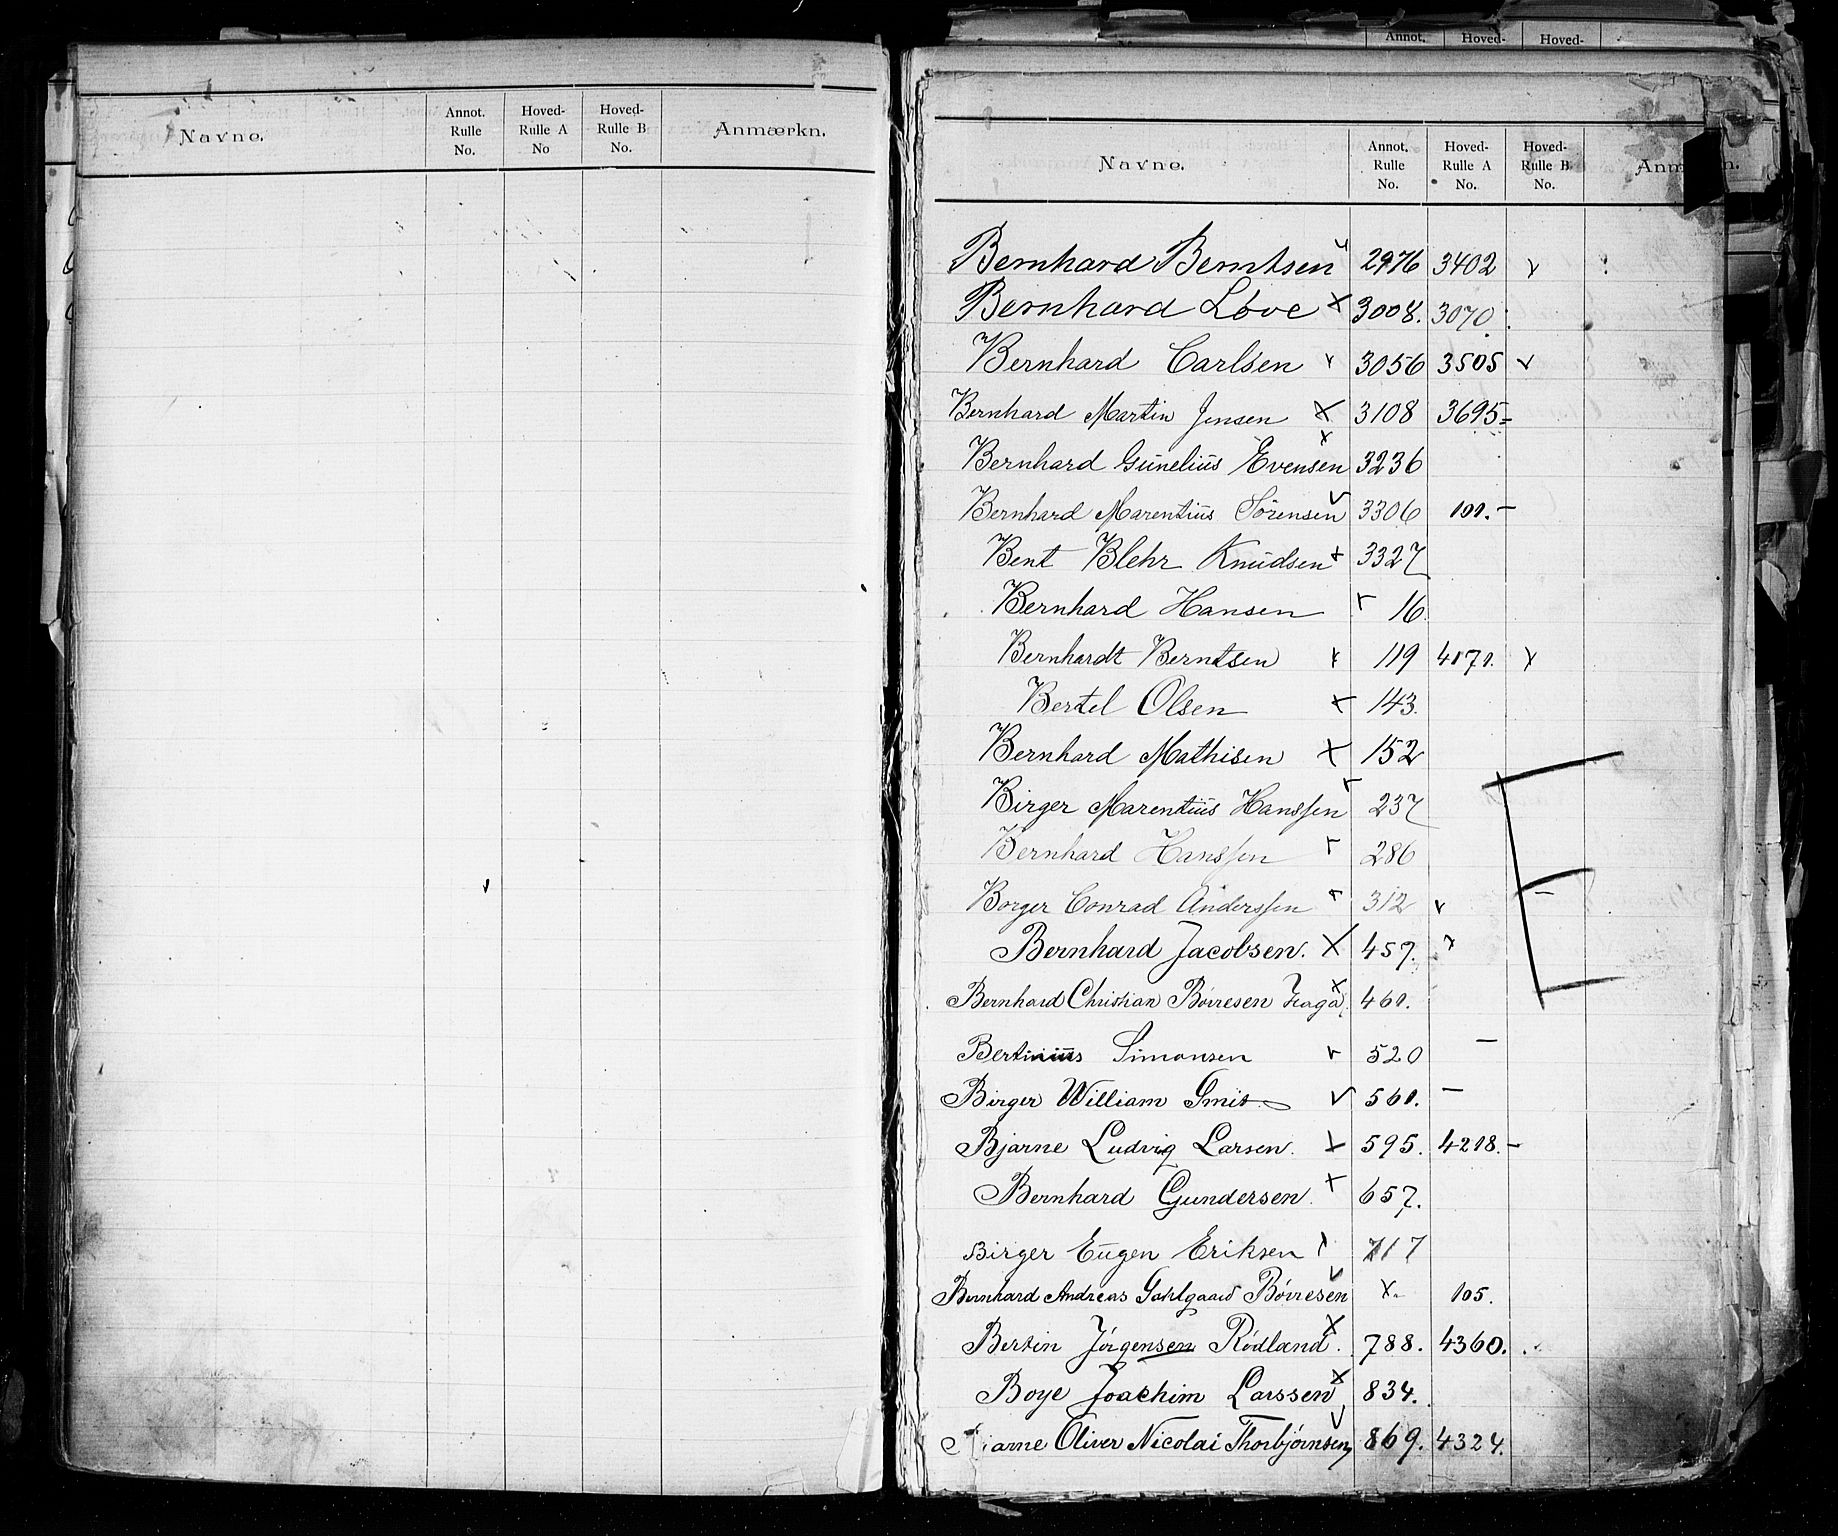 Annot. Hoved- Hoved-
Navne. Annot. Rulle No. Hoved-Rulle A No Hoved-Rulle B No. Anmærkn.
Navne. Annot. Rulle No. Hoved-Rulle A No. Hoved-Rulle B No.
Bernhard Berntsen 2976 3402 v
Bernhard Løve x 3008. 3070.
Bernhard Carlsen v 3056 3505 v
Bernhard Martin Jensen x 3108 3695=
Bernhard Gunelius Evensen x 3236
Bernhard Marentius Sørensen v 3306 101.-
Bent Blehr Knudsen x 3327
Bernhard Hansen r 16
Bernhardt Berntsen x 119 4171. x
Bertel Olsen x 143.
Bernhard Mathisen x 152
Birger Marentius Hanssen r 237
Bernhard Hanssen r 286
Borger Conrad Anderssen r 312 v -
Bernhard Jacobsen. X 457. x
Bernhard Christian Børresen x 461.
Bertinius Simonsen v 520 -
Birger William Smit v 561. -
Bjarne Ludvig Larsen. x 595. 4218.-
Bernhard Gundersen. x 657.
Birger Eugen Eriksen x 717
Bernhard Andreas Dahlgaard Børresen v x. 105.
Bertin Jørgensen Rødland. x 788. 4360.
Boye Joachim Larssen x 834.
Bjarne Oliver Nicolai Thorbjørnsen v 869. 4324.